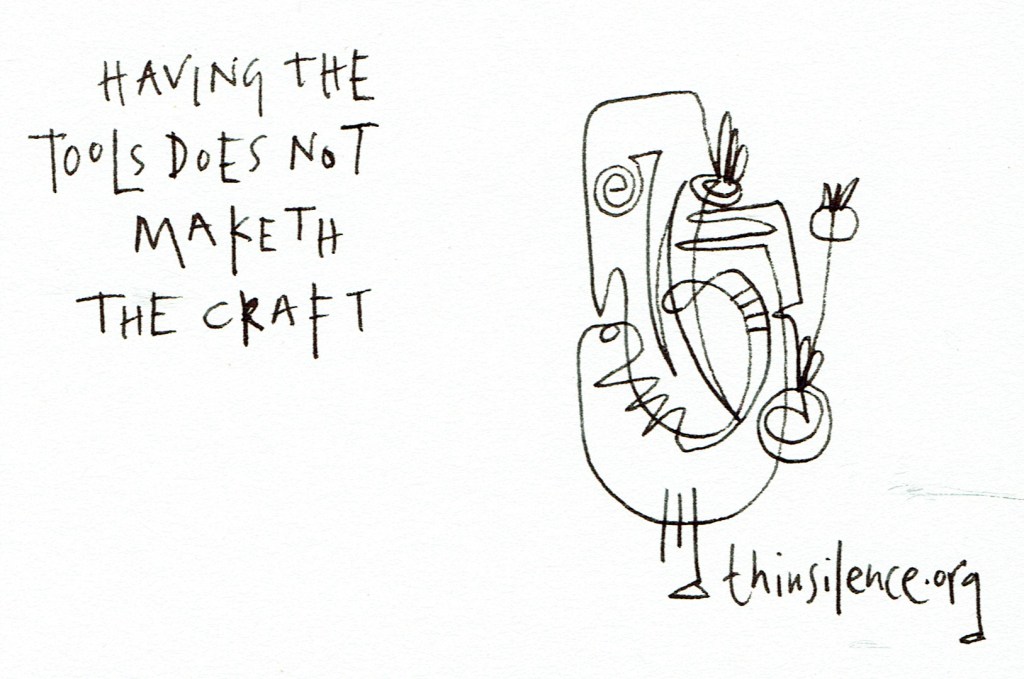 HAVING THE
TOOLS DOES NOT
MAKETH
THE CRAFT
thinsilence.org